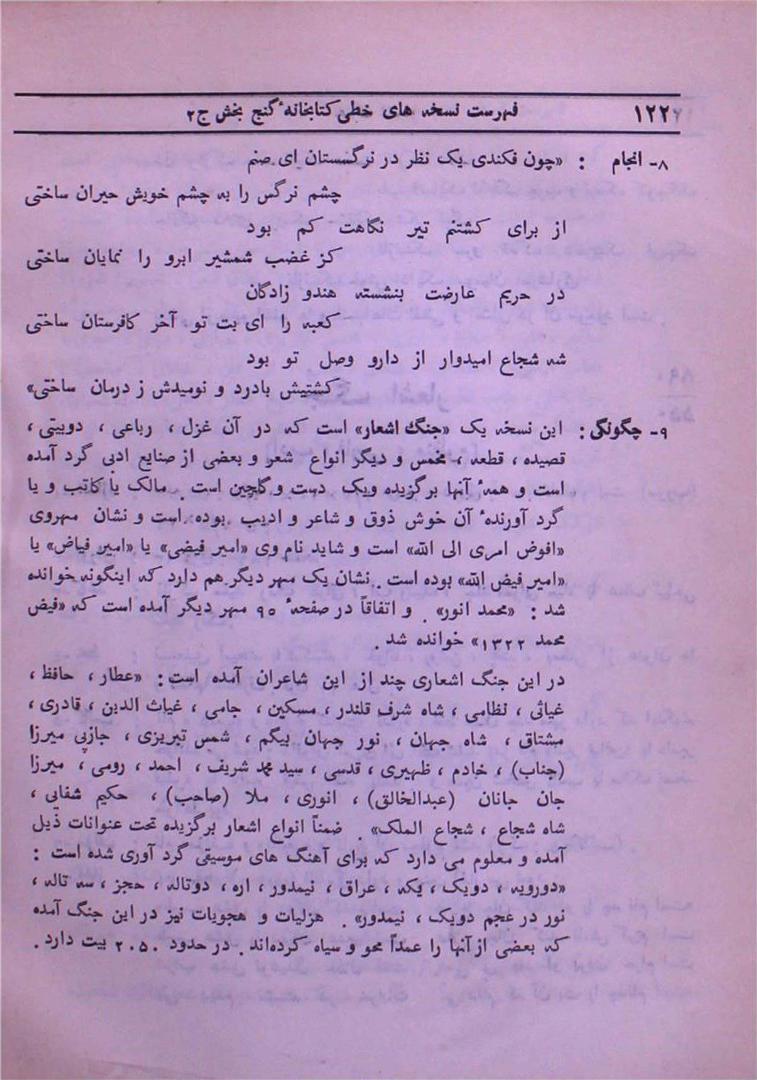 ۱۲۲ فهرست نسخه های خطی کتابخانهٔ گنج بخش ج۲
۸- انجام : «چون فکندی یک نظر در نرگستان ای صنم
چشم نرگس را به چشم خویش حیران ساختی
از برای کشتنم تیر نگاهت کم بود
کز غضب شمشیر ابرو را نمایان ساختی
در حریم عارضت بنشسته هندو زادگان
کعبه را ای بت تو آخر کافرستان ساختی
شه شجاع امیدوار از دارو وصل تو بود
کشتیش بادرد و نومیدش ز درمان ساختی»
۹- چگونگی : این نسخه یک «جنگ اشعار» است که در آن غزل ، رباعی ، دوبیتی ،
قصیده ، قطعه ، مخمس و دیگر انواع شعر و بعضی از صنایع ادبی گرد آمده
است و همهٔ آنها برگزیده ویک دست و گلچین است . مالک یا کاتب و یا
گرد آورندهٔ آن خوش ذوق و شاعر و ادیب بوده است و نشان مهروی
«افوض امری الی الله» است و شاید نام وی «امیر فیضی» یا «امیر فیاض» یا
«امیر فیض الله» بوده است . نشان یک مهر دیگر هم دارد که اینگونه خوانده
شد : «محمد انور» . و اتفاقاً در صفحهٔ ۹۵ مهر دیگر آمده است که «فیض
محمد ۱۳۲۲» خوانده شد .
در این جنگ اشعاری چند از این شاعران آمده است : «عطار ، حافظ ،
غیاثی ، نظامی ، شاه شرف قلندر ، مسکین ، جامی ، غیاث الدین ، قادری ،
مشتاق ، شاه جهان ، نور جهان بیگم ، شمس تبریزی ، جازبی میرزا
(جناب) ، خادم ، ظهیری ، قدسی ، سید محمد شریف ، احمد ، رومی ، میرزا
جان جانان (عبدالخالق) ، انوری ، ملا (صاحب) ، حکیم شفایی ،
شاه شجاع ، شجاع الملک» . ضمناً انواع اشعار برگزیده تحت عنوانات ذیل
آمده و معلوم می دارد که برای آهنگ های موسیقی گرد آوری شده است :
«دورویه ، دویک ، یکه ، عراق ، نیمدور ، اره ، دوتاله ، حجز ، سه تاله ،
نور در عجم دویک ، نیمدور» . هزلیات و هجویات نیز در این جنگ آمده
که بعضی از آنها را عمداً محو و سیاه کرده‌اند . در حدود ۲۰۵۰ بیت دارد .